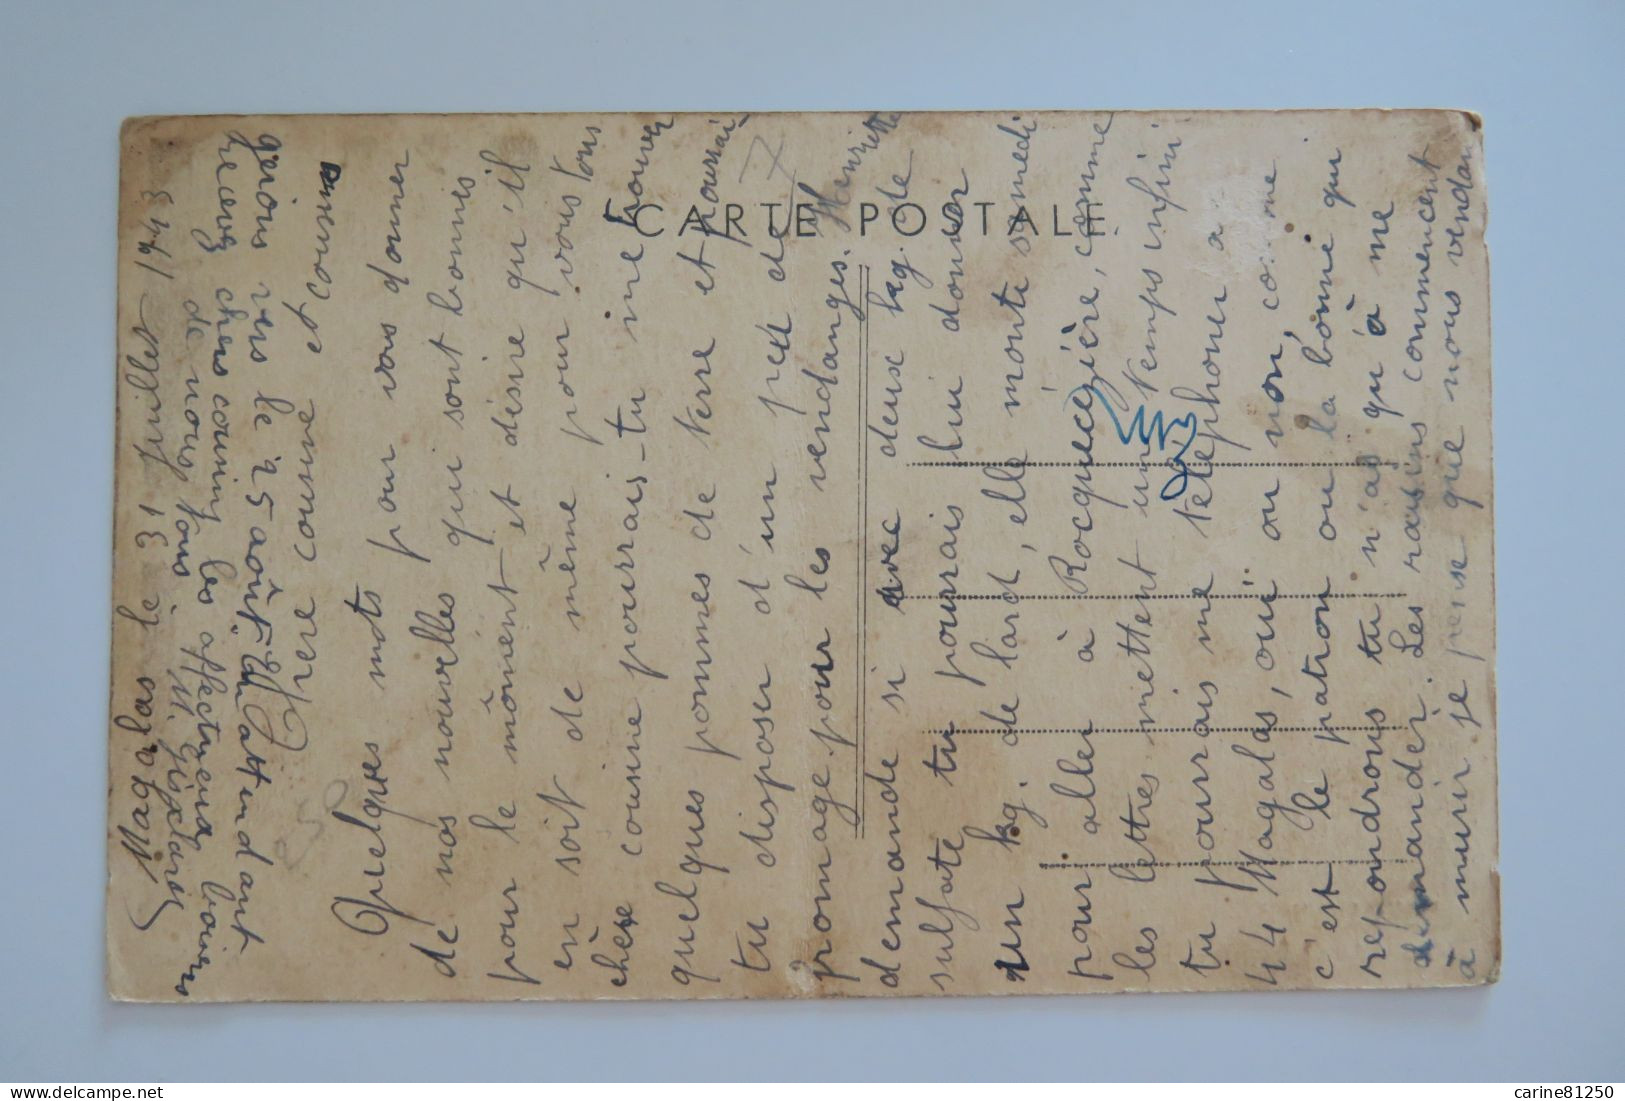 Magalas le 31 juillet 1943
Chere cousine et cousin
Quelques mots pour vous donner
de nos nouvelles qui sont bonnes
pour le môment et désire qu'il
en soit de même pour vous tous
chère cousine pourrais-tu me trouver
quelques pommes de terre et pourrai
tu disposer d'un peu de
fromage pour les vendanges. Henriette
demande si avec deux kg. de
sulfate tu pourrais lui donner
un kg. de lard, elle monte samedi
pour aller à Rocquecézière, comme
les lettres mettent un temps infini
tu pourrais me téléphoner a
44 Magalas, oui ou non, comme
c'est le patron ou la bonne qui
repondrons tu n'as qu'à me
demander. Les raisins commencent
à murir je pense que nous vendan
gerons vers le 25 août. En attendant
recevez chers cousins les affectueux baisers
de nous tous
CARTE POSTALE
7
carine81250